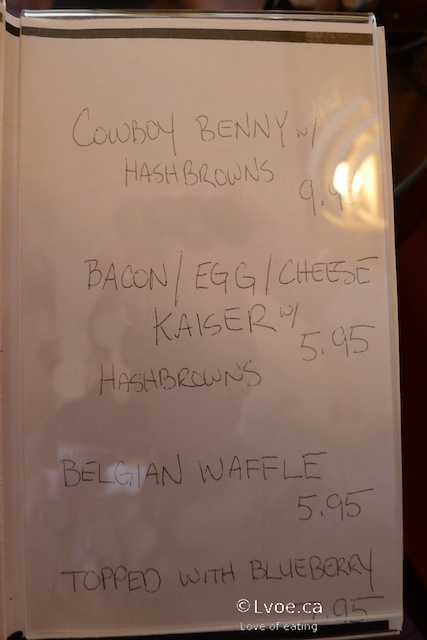 COWBOY BENNY w/
HASHBROWNS
BACON/EGG/CHEESE
KAISER w/
5.95
HASHBROWNS
BELGIAN WAFFLE
5.95
TOPPED WITH BLUEBERRY
© Lvoe.ca
Love of eating